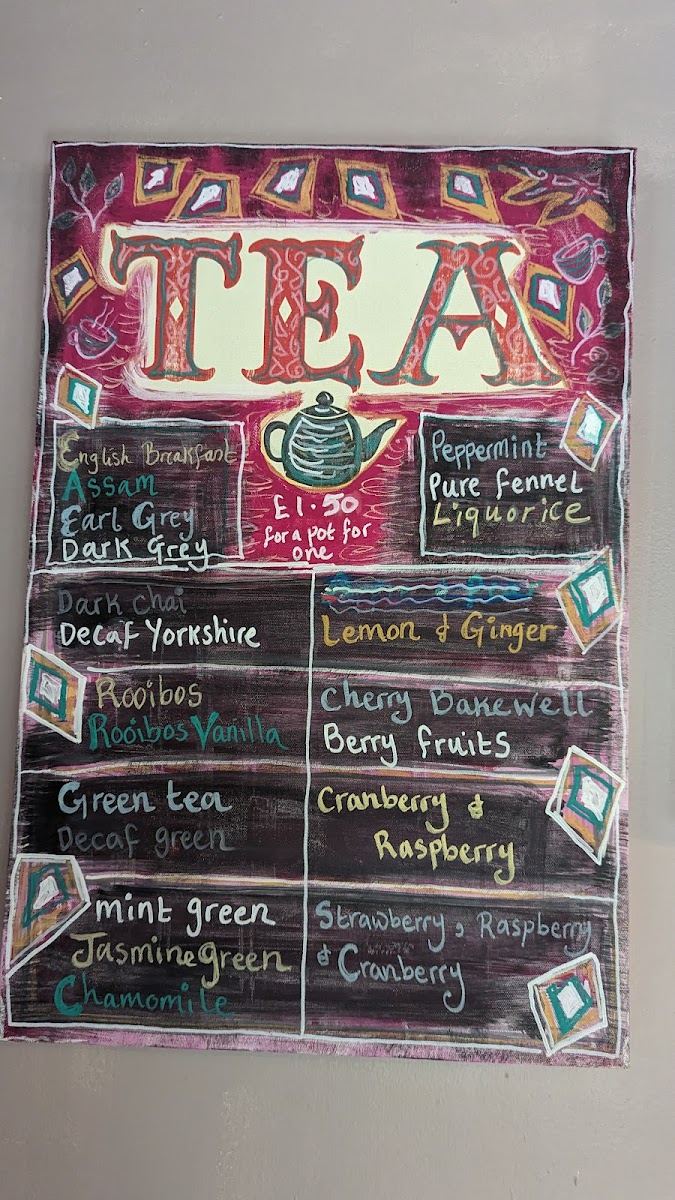 TEA
English Breakfast
Assam
Earl Grey
Dark Grey
£1.50
for a pot for
one
Peppermint
Pure fennel
Liquorice
Dark Chai
Decaf Yorkshire
Rooibos
Rooibos Vanilla
Green tea
Decaf green
mint green
Jasmine green
Chamomile
Lemon & Ginger
Cherry Bakewell
Berry fruits
Cranberry &
Raspberry
Strawberry, Raspberry
& Cranberry